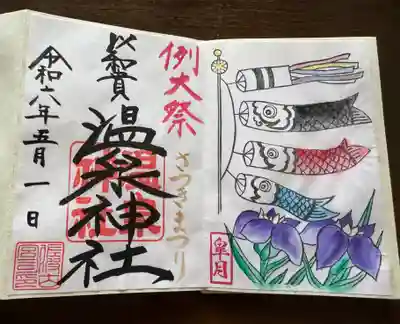 例大祭
さつきまつり
温泉神社
令和六年五月一日
皐月